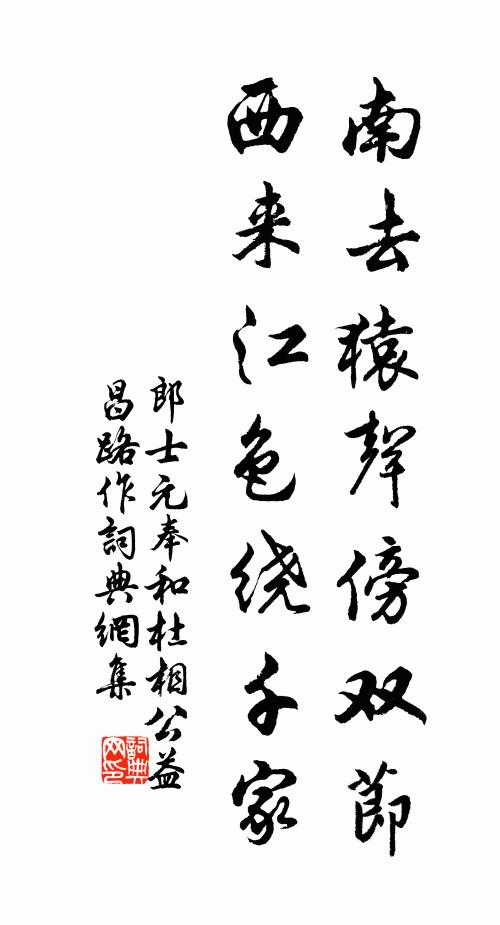 南去猿聲傍双節
西来江色绕千家
郎士元奉和杜相公益
昌路作詞典網集
詞典
网印